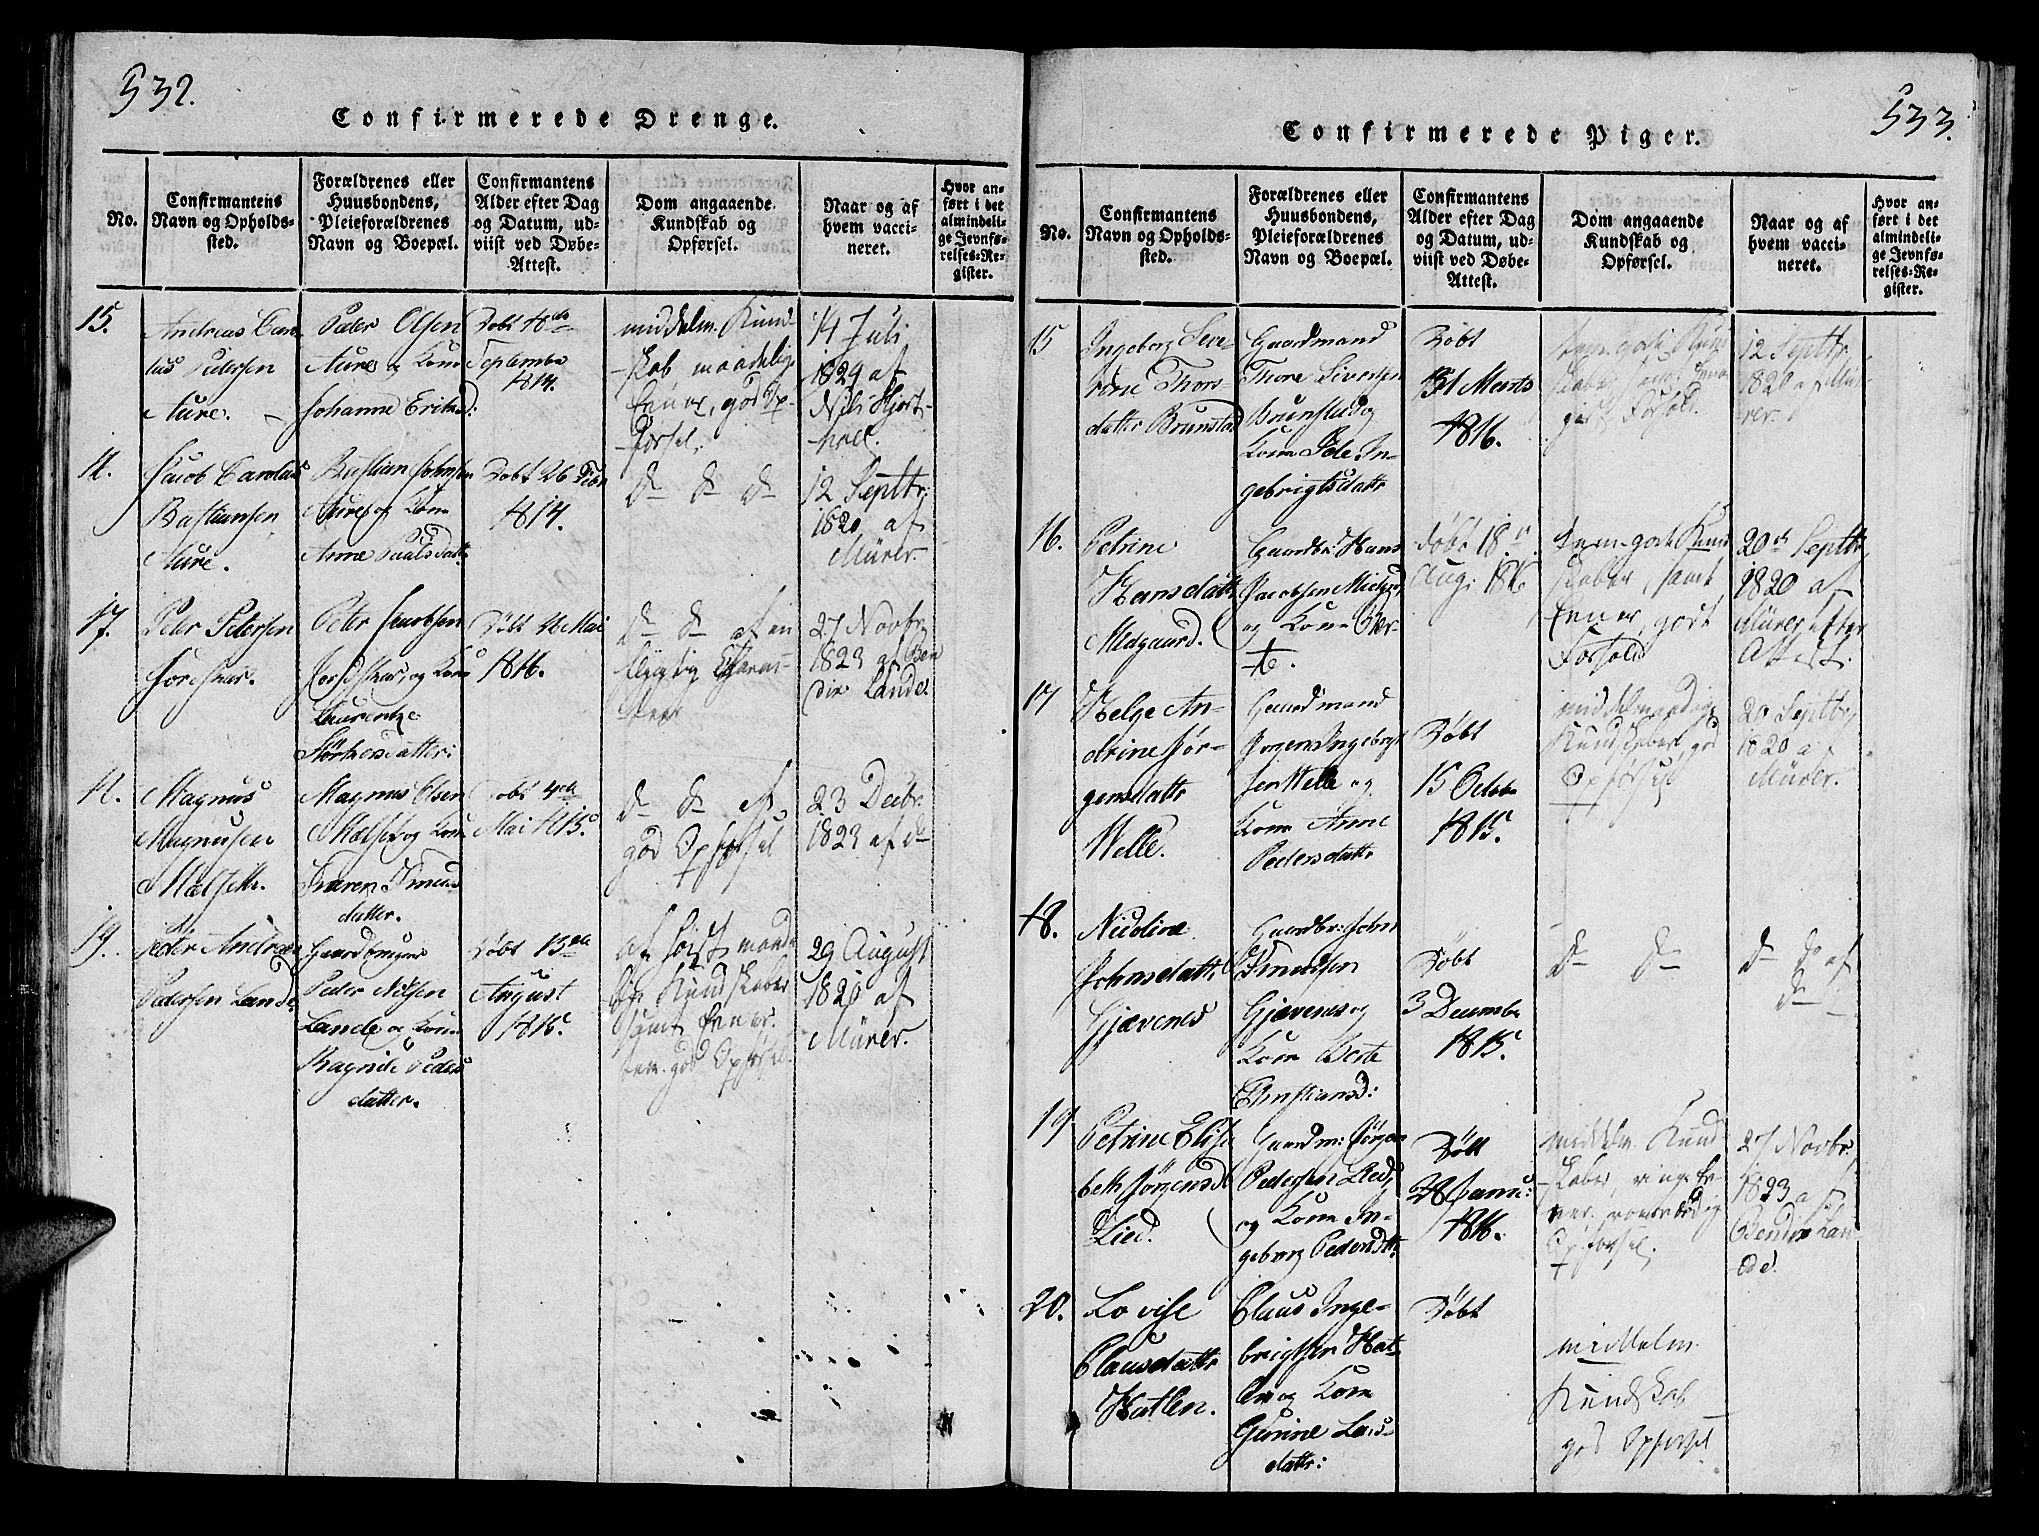 532.
Confirmerede Drenge.
No.
Confirmantens
Navn og Opholds-
sted.
Forældrenes eller
Huusbondens,
Pleieforældrenes
Navn og Boepæl.
Confirmantens
Alder efter Dag
og Datum, ud-
viist ved Døbe-
Attest.
Dom angaaende
Kundskab og
Opførsel.
Naar og af
hvem vacci-
neret.
Hvor an-
ført i det
almindeli-
ge Jevnfø-
relses-Re-
gister.
15.
Andreas Caro-
lus Pedersen
Aure.
Peder Olsen
Aure og Kone
Johanne
Døbt
September
1814.
middelm. Kund-
skab maadelig
Evner, god Op-
førsel.
14 Juli
af
Jacob Carolus
Bastiansen
Aure.
Bastian Johnsen
Aure og Kone
Anne Paalsdattr
Døbt 26 Febr
1814.
D D D
12 Septbr.
1820 af
Mürer.
17.
Peter Petersen
Peter Jacobsen
og Kone
Laurentze
Døbt Mai
1816.
D D af en
27 Novbr.
1823 af Ben
din Lande.
Magnus
Magnusen
Magnus Olsen
og Kone
Karen
datter.
Døbt
Mai 1815.
D D af
god Opførsel
23 Decbr.
1823 af D
19.
Peder Andreas
Pedersen Lande
Gaardbruger
Peder Nilsen
Lande og Kone
Ragnilde Peders
datter.
Døbt 13
August
1815.
af høist maade
lige Kundskaber
samt Evner.
tem. god Opførsel.
29 August
1820 af
Mürer.
533.
Confirmerede Piger.
No.
Confirmantens
Navn og Opholds-
sted.
Forældrenes eller
Huusbondens,
Pleieforældrenes
Navn og Boepæl.
Confirmantens
Alder efter Dag
og Datum, ud-
viist ved Døbe-
Attest.
Dom angaaende
Kundskab og
Opførsel.
Naar og af
hvem vacci-
neret.
Hvor an-
ført i det
almindeli-
ge Jevnfø-
relses-Re-
gister.
15
Ingeborg Seve-
rine Thors
datter Brunstad
Gaardmand
Thore Sivertsen
Brunstad og
Kone In-
gebrigtsdattr
Døbt
Marts
1816.
12 Septbr
1820 af Mü-
rer.
16.
Petrine
Hansdattr
Midgaard.
Gaardbr: Hans
Jacobsen
og Kone
Døbt 18
Aug: 1816
tem. gode Kund
skaber, samt
Evner, godt
Forhold
20 Septbr
1820 af
Mürer efter
Attest.
17
Helge An-
drine Jør-
gensdattr
Welle.
Gaardmand
Jørgen Ingebrigt
sen Welle og
Kone Anne
Pedersdattr
Døbt
15 Octobr
1815.
middelmaadige
Kundskaber, god
Opførsel
20 Septbr
1820 af
Mürer.
18.
Nicoline
Johnsdattr.
Gjævenes
Gaardbr: John
Gjævenes og
Kone Berte
Christiansd:
Døbt
3 Decembr
1815.
D D
D D af
D
19
Petrine Elisa
beth Jørgensd
Lied.
Gaardm: Jørgen
Pedersen Lied,
og Kone In-
geborg Pedersdtr
Døbt
28 Janu:
1816.
middelm. Kund
skaber, ringe Ev-
ner
Opførsel.
27 Novbr.
1823 af
Bendin Lan-
de.
20.
Lovise
Clausdattr
Hatlen.
Claus Inge-
brigtsen Hat-
len og Kone
Gunine Lars-
dattr:
Døbt
middelm.
Kundskab
god Opførsel